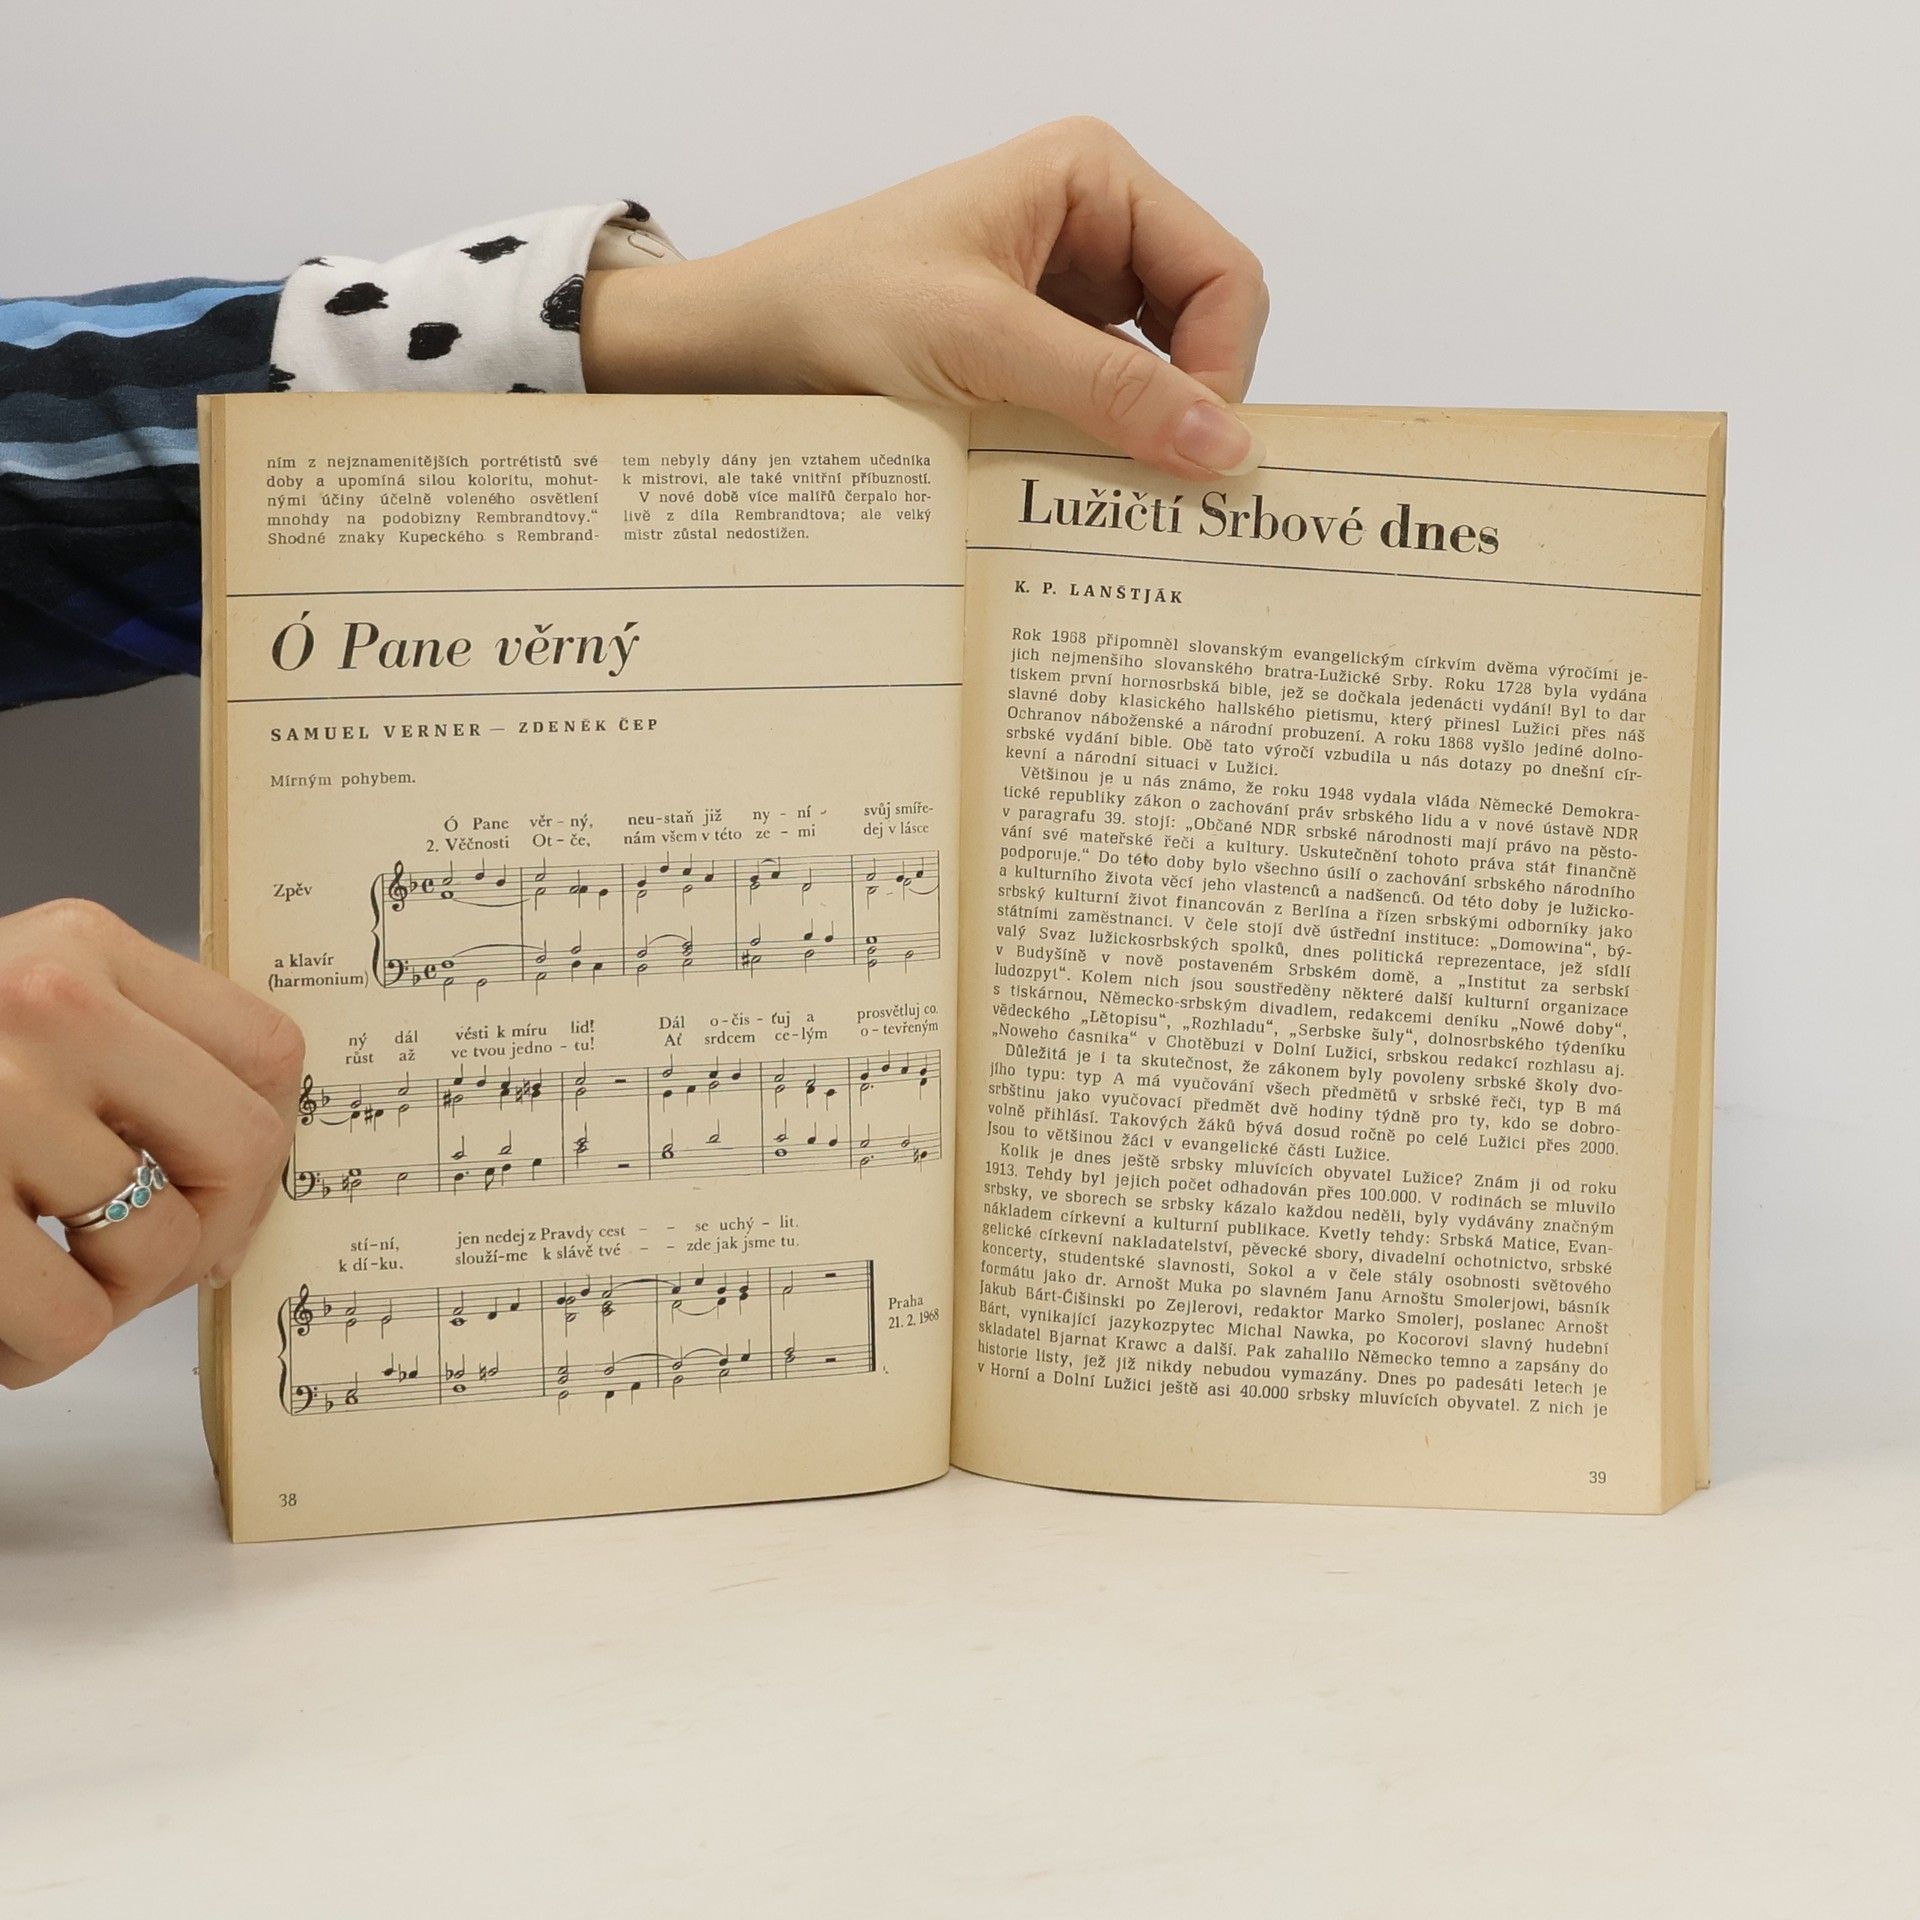 ním z nejznamenitějších portrétistů své
doby a upomíná silou koloritu, mohut-
nými účiny účelně voleného osvětlení
mnohdy na podobizny Rembrandtovy.“
Shodné znaky Kupeckého s Rembrand-
tem nebyly dány jen vztahem učedníka
k mistrovi, ale také vnitřní příbuzností.
V nové době více malířů čerpalo hor-
livě z díla Rembrandtova; ale velký
mistr zůstal nedostižen.
Ó Pane věrný
SAMUEL VERNER — ZDENĚK ČEP
Mírným pohybem.
Ó Pane věr – ný, neu-staň již ny – ní svůj smíře-
2. Věčnosti Ot – če, nám všem v této ze – mi dej v lásce
Zpěv
a klavír
(harmonium)
ný dál vésti k míru lid! Dál o-čis – ťuj a prosvětluj co.
růst až ve tvou jedno – tu! Ať srdcem ce-lým o-tevřeným
stí-ní, jen nedej z Pravdy cest – – se uchý – lit.
k dí-ku. slouží-me k slávě tvé – – zde jak jsme tu.
Praha
21. 2. 1968
38
Lužičtí Srbové dnes
K. P. LANŠTJÁK
Rok 1968 připomněl slovanským evangelickým církvím dvěma výročími je-
jich nejmenšího slovanského bratra-Lužické Srby. Roku 1728 byla vydána
tiskem první hornosrbská bible, jež se dočkala jedenácti vydání! Byl to dar
slavné doby klasického hallského pietismu, který přinesl Lužici přes náš
Ochranov náboženské a národní probuzení. A roku 1868 vyšlo jediné dolno-
srbské vydání bible. Obě tato výročí vzbudila u nás dotazy po dnešní cír-
kevní a národní situaci v Lužici.
Většinou je u nás známo, že roku 1948 vydala vláda Německé Demokra-
tické republiky zákon o zachování práv srbského lidu a v nové ústavě NDR
v paragrafu 39. stojí: „Občané NDR srbské národnosti mají právo na pěsto-
vání své mateřské řeči a kultury. Uskutečnění tohoto práva stát finančně
podporuje.“ Do této doby bylo všechno úsilí o zachování srbského národního
a kulturního života věcí jeho vlastenců a nadšenců. Od této doby je lužicko-
srbský kulturní život financován z Berlína a řízen srbskými odborníky jako
státními zaměstnanci. V čele stojí dvě ústřední instituce: „Domowina“, bý-
valý Svaz lužickosrbských spolků, dnes politická reprezentace, jež sídlí
v Budyšíně v nově postaveném Srbském domě, a „Institut za serbski
ludozpyt“. Kolem nich jsou soustředěny některé další kulturní organizace
s tiskárnou, Německo-srbským divadlem, redakcemi deníku „Nowé doby“,
vědeckého „Lětopisu“, „Rozhladu“, „Serbske šuly“, dolnosrbského týdeníku
„Noweho ćasnika“ v Chotěbuzi v Dolní Lužici, srbskou redakcí rozhlasu aj.
Důležitá je i ta skutečnost, že zákonem byly povoleny srbské školy dvo-
jího typu: typ A má vyučování všech předmětů v srbské řeči, typ B má
srbštinu jako vyučovací předmět dvě hodiny týdně pro ty, kdo se dobro-
volně přihlásí. Takových žáků bývá dosud ročně po celé Lužici přes 2000.
Jsou to většinou žáci v evangelické části Lužice.
Kolik je dnes ještě srbsky mluvících obyvatel Lužice? Znám ji od roku
1913. Tehdy byl jejich počet odhadován přes 100.000. V rodinách se mluvilo
srbsky, ve sborech se srbsky kázalo každou neděli, byly vydávány značným
nákladem církevní a kulturní publikace. Kvetly tehdy: Srbská Matice, Evan-
gelické církevní nakladatelství, pěvecké sbory, divadelní ochotnictvo, srbské
koncerty, studentské slavnosti, Sokol a v čele stály osobnosti světového
formátu jako dr. Arnošt Muka po slavném Janu Arnoštu Smolerjowi, básník
Jakub Bárt-Ćišinski po Zejlerovi, redaktor Marko Smolerj, poslanec Arnošt
Bárt, vynikající jazykozpytec Michal Nawka, po Kocorovi slavný hudební
skladatel Bjarnat Krawc a další. Pak zahalilo Německo temno a zapsány do
historie listy, jež již nikdy nebudou vymazány. Dnes po padesáti letech je
v Horní a Dolní Lužici ještě asi 40.000 srbsky mluvících obyvatel. Z nich je
39